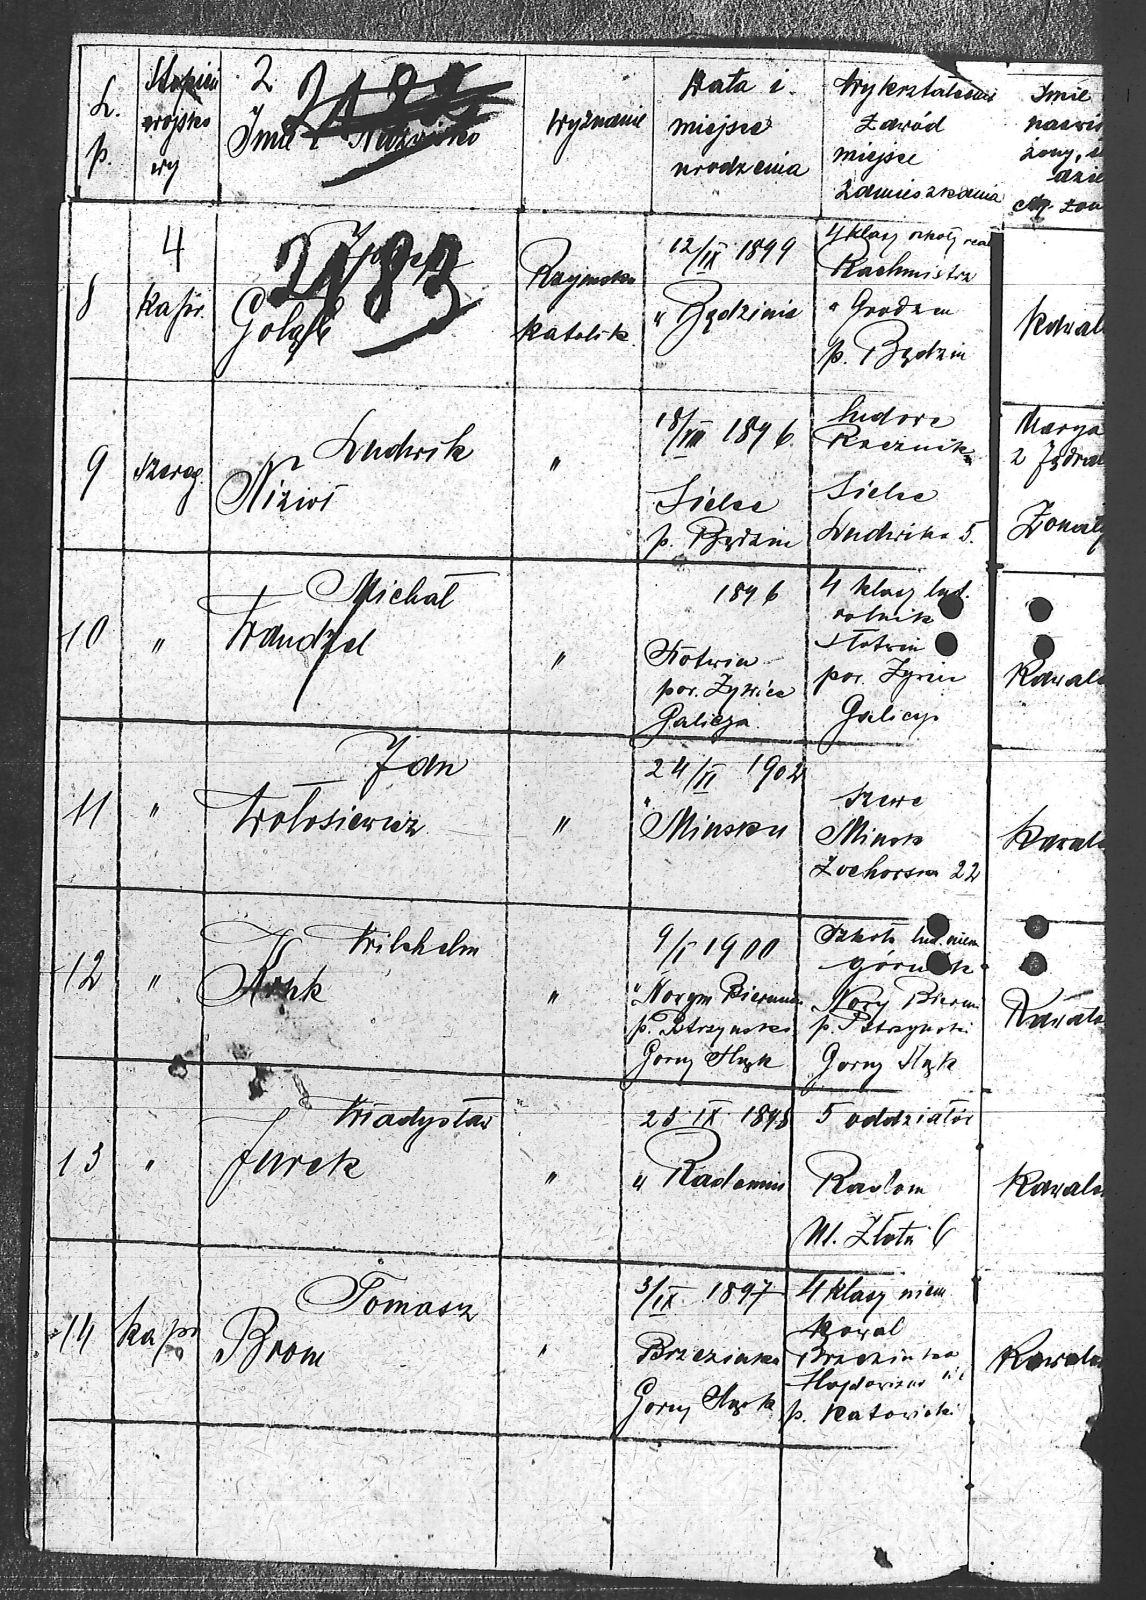 L. p.
Stopień wojsko wy
2
2182
Imię i Nazwisko
wyznanie
Data i miejsce urodzenia
wykształcenie zawód miejsce zamieszkania
Imię
nazwis
żony,
dzie
cky. żon
8
4
kapr.
2183
Józef
Gołąb
Rzymsko
katolik
12/IX 1899
w Będzinie
4 klasy szkoły real
Rachmistrz
w Grodźcu
p. Będzin
Kawal
9
szereg.
Ludwik
Nizioł
"
18/VIII 1896
Sielce
p. Będzin
ludowe
Rzeźnik
Sielce
Ludwika 5.
Marya
z Jędrze
Żonaty
10
"
Michał
Wandzel
"
1896
Słotwina
pow. Żywiec
Galicja
4 klasy lud.
rolnik
Słotwin
pow. Żywiec
Galicja
Kawale
11
"
Jan
Wołosiewicz
"
24/II 1902
w Mińsku
szewc
Mińsk
22
Kawale
12
"
Wilchelm
"
9/I 1900
w Nowym Bieruniu
p. Pszczyński
Górny Śląsk
szkoła lud. niem
górnik
Nowy Bieruń
p. Pszczyński
Górny Śląsk
Kawale
13
"
Władysław
Jurek
"
25 IX 1898
w Radomiu
5 oddziałów
Radom
Ul. Złota 6
Kawale
14
kapr
Tomasz
Brom
"
3/IX 1897
Brzezinka
Górny Śląsk
4 klasy niem
kowal
Brzezinka
p. Katowicki
Kawale